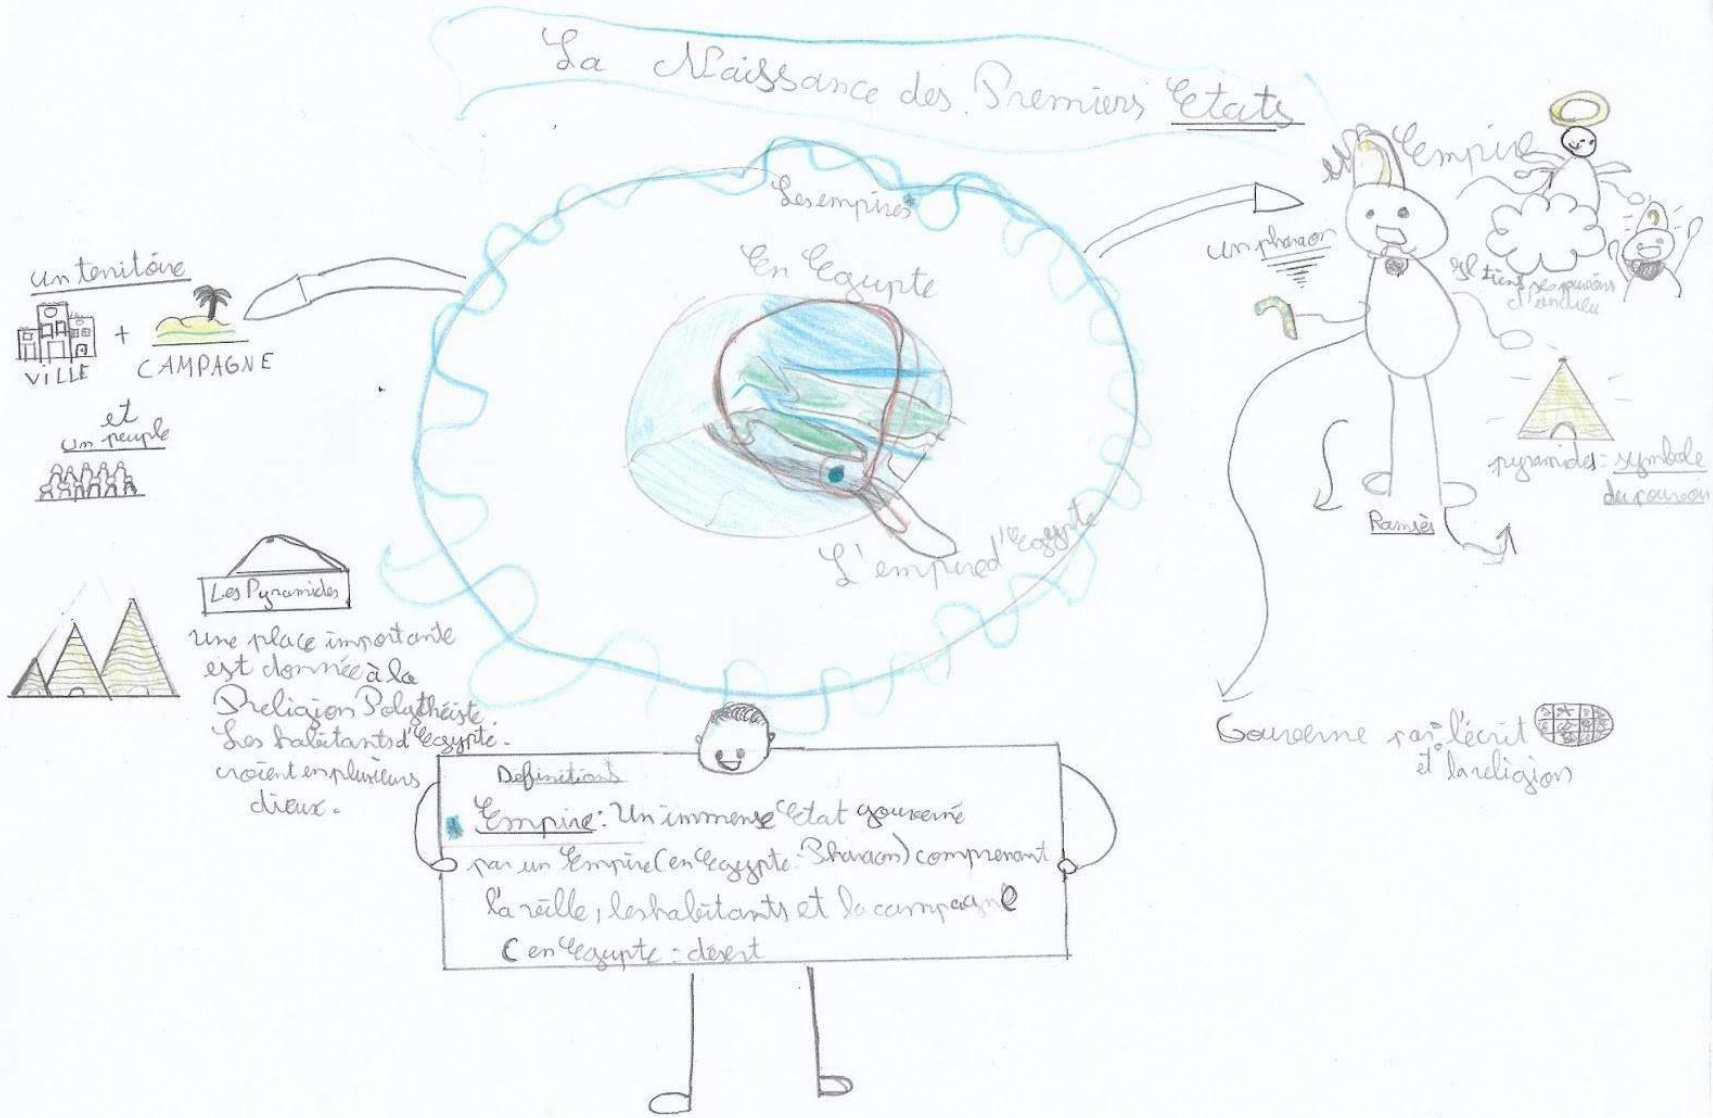 La Naissance des Premiers Etats
Les empires*
En Egypte
L'empire d'Egypte
un territoire
VILLE
+
CAMPAGNE
et
un peuple
Les Pyramides
Une place importante
est donnée à la
Religion Polythéiste.
Les habitants d'Egypte.
croient en plusieurs
dieux.
Empire
un pharaon
Il tient ses pouvoirs
pyramides: symbole
du pouvoir
Ramsès
Gouverne par l'écrit
et la religion
Definitions
Empire: Un immense Etat gouverné
par un Empire (en Egypte: Pharaon) comprenant
la ville, les habitants et la campagne
(en Egypte = désert